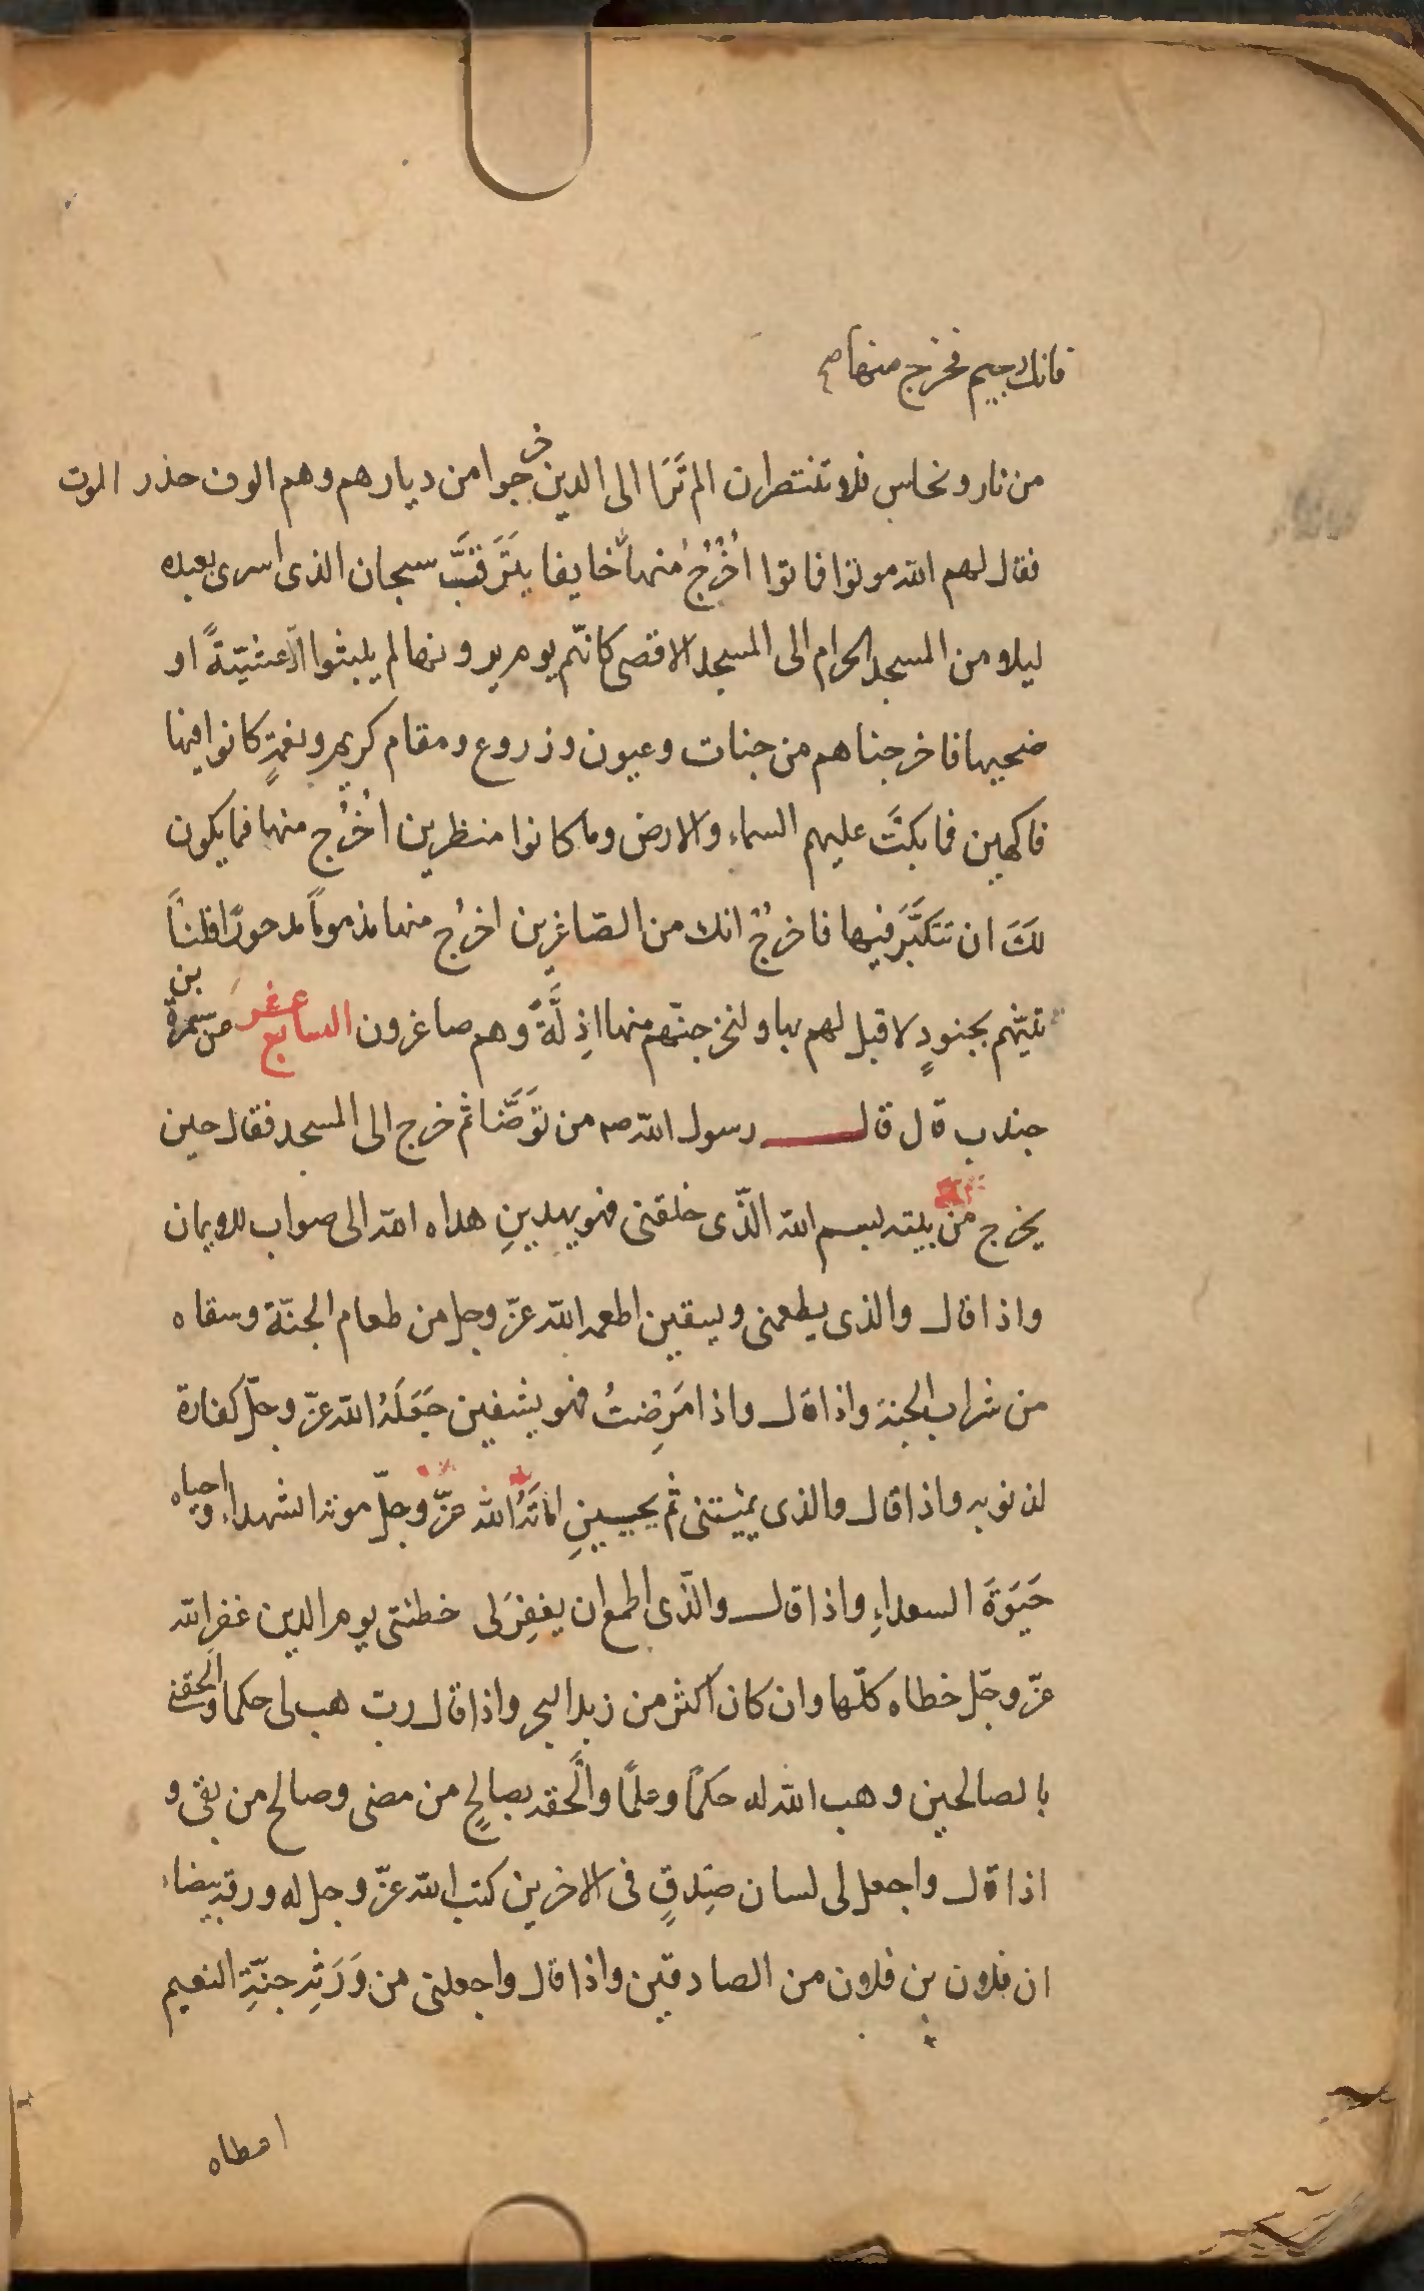 فانك رجيم فخرج منها صح
من نار ونحاس فلا تنتصران الم تَرَا الى الذين خرجوا من ديارهم وهم الوف حذر الموت
فقال لهم الله موتوا فماتوا اُخْرُجْ منها خايفا يَتَرَقَّبَّ سبحان الذى اسرى بعبده
ليلا من المسجد الحرام الى المسجد الاقصى كانّهم يوم يرونها لم يلبثوا الّا عشيّةً او
ضحيها فاخرجناهم من جنات وعيون وزروع ومقام كريم ونعمةٍ كانوا فيها
فاكهين فما بكَتْ عليهم السماء والارض وما كانوا منظرين اُخْرُج منها فما يكون
لكَ ان تتكَبَّرَ فيها فاخرجْ انك من الصّاغرين اخرُج منها مذموماً مدحورًا فلنأ
تينّهم بجنودٍ لا قبل لهم بها ولنخرجنّهم منها اذِلَّةً وهم صاغرون السابع عشر من سمرة بن
جندب قال قال رسول الله صم من توَضَّأ ثم خرج الى المسجد فقال حين
يخرج من بيته بسم الله الذّى خلقنى فهو يهدينِ هداه الله الى صواب للايمان
واذا قال والذى يطعمنى ويسقين اطعمه الله عزّ وجل من طعام الجنّة وسقاه
من شراب الجنة واذا قال واذا مَرِضتُ فهو يشفين جَعَلَهُ الله عزّ وجلّ كفارة
لذنوبه واذا قال والذى يميتنى ثم يحيينِ اماتَهُ الله عزّ وجلّ موتة الشهداء واحياه
حَيَوةَ السعداءِ واذا قال والذّى اطمع ان يغفِرَلى خطئتى يوم الدين غفر الله
عزّ وجّل خطاه كلّها وان كان اكثر من زبد البحر واذا قال ربّ هب لى حكما والحقنى
بالصالحين وهب الله له حكمًا وعلمًا والَحقه بصالحٍ من مضى وصالح من بقى و
اذا قال واجعل لى لسان صِدقٍ فى الاخرين كتب الله عزّ وجل له ورقة بيضاء
ان فلان بن فلان من الصادقين واذا قال واجعلنى من وَرَثةِ جنّةِ النعيم
اعطاه